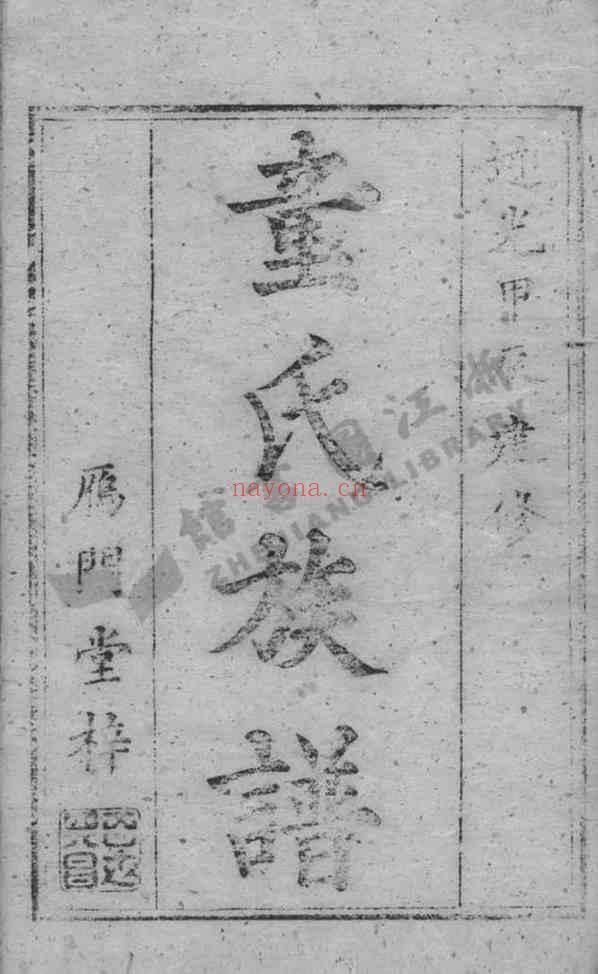 道光甲辰建修
童氏族譜
雁門堂梓
浙江圖書館
ZHEJIANG LIBRARY
nayona.cn